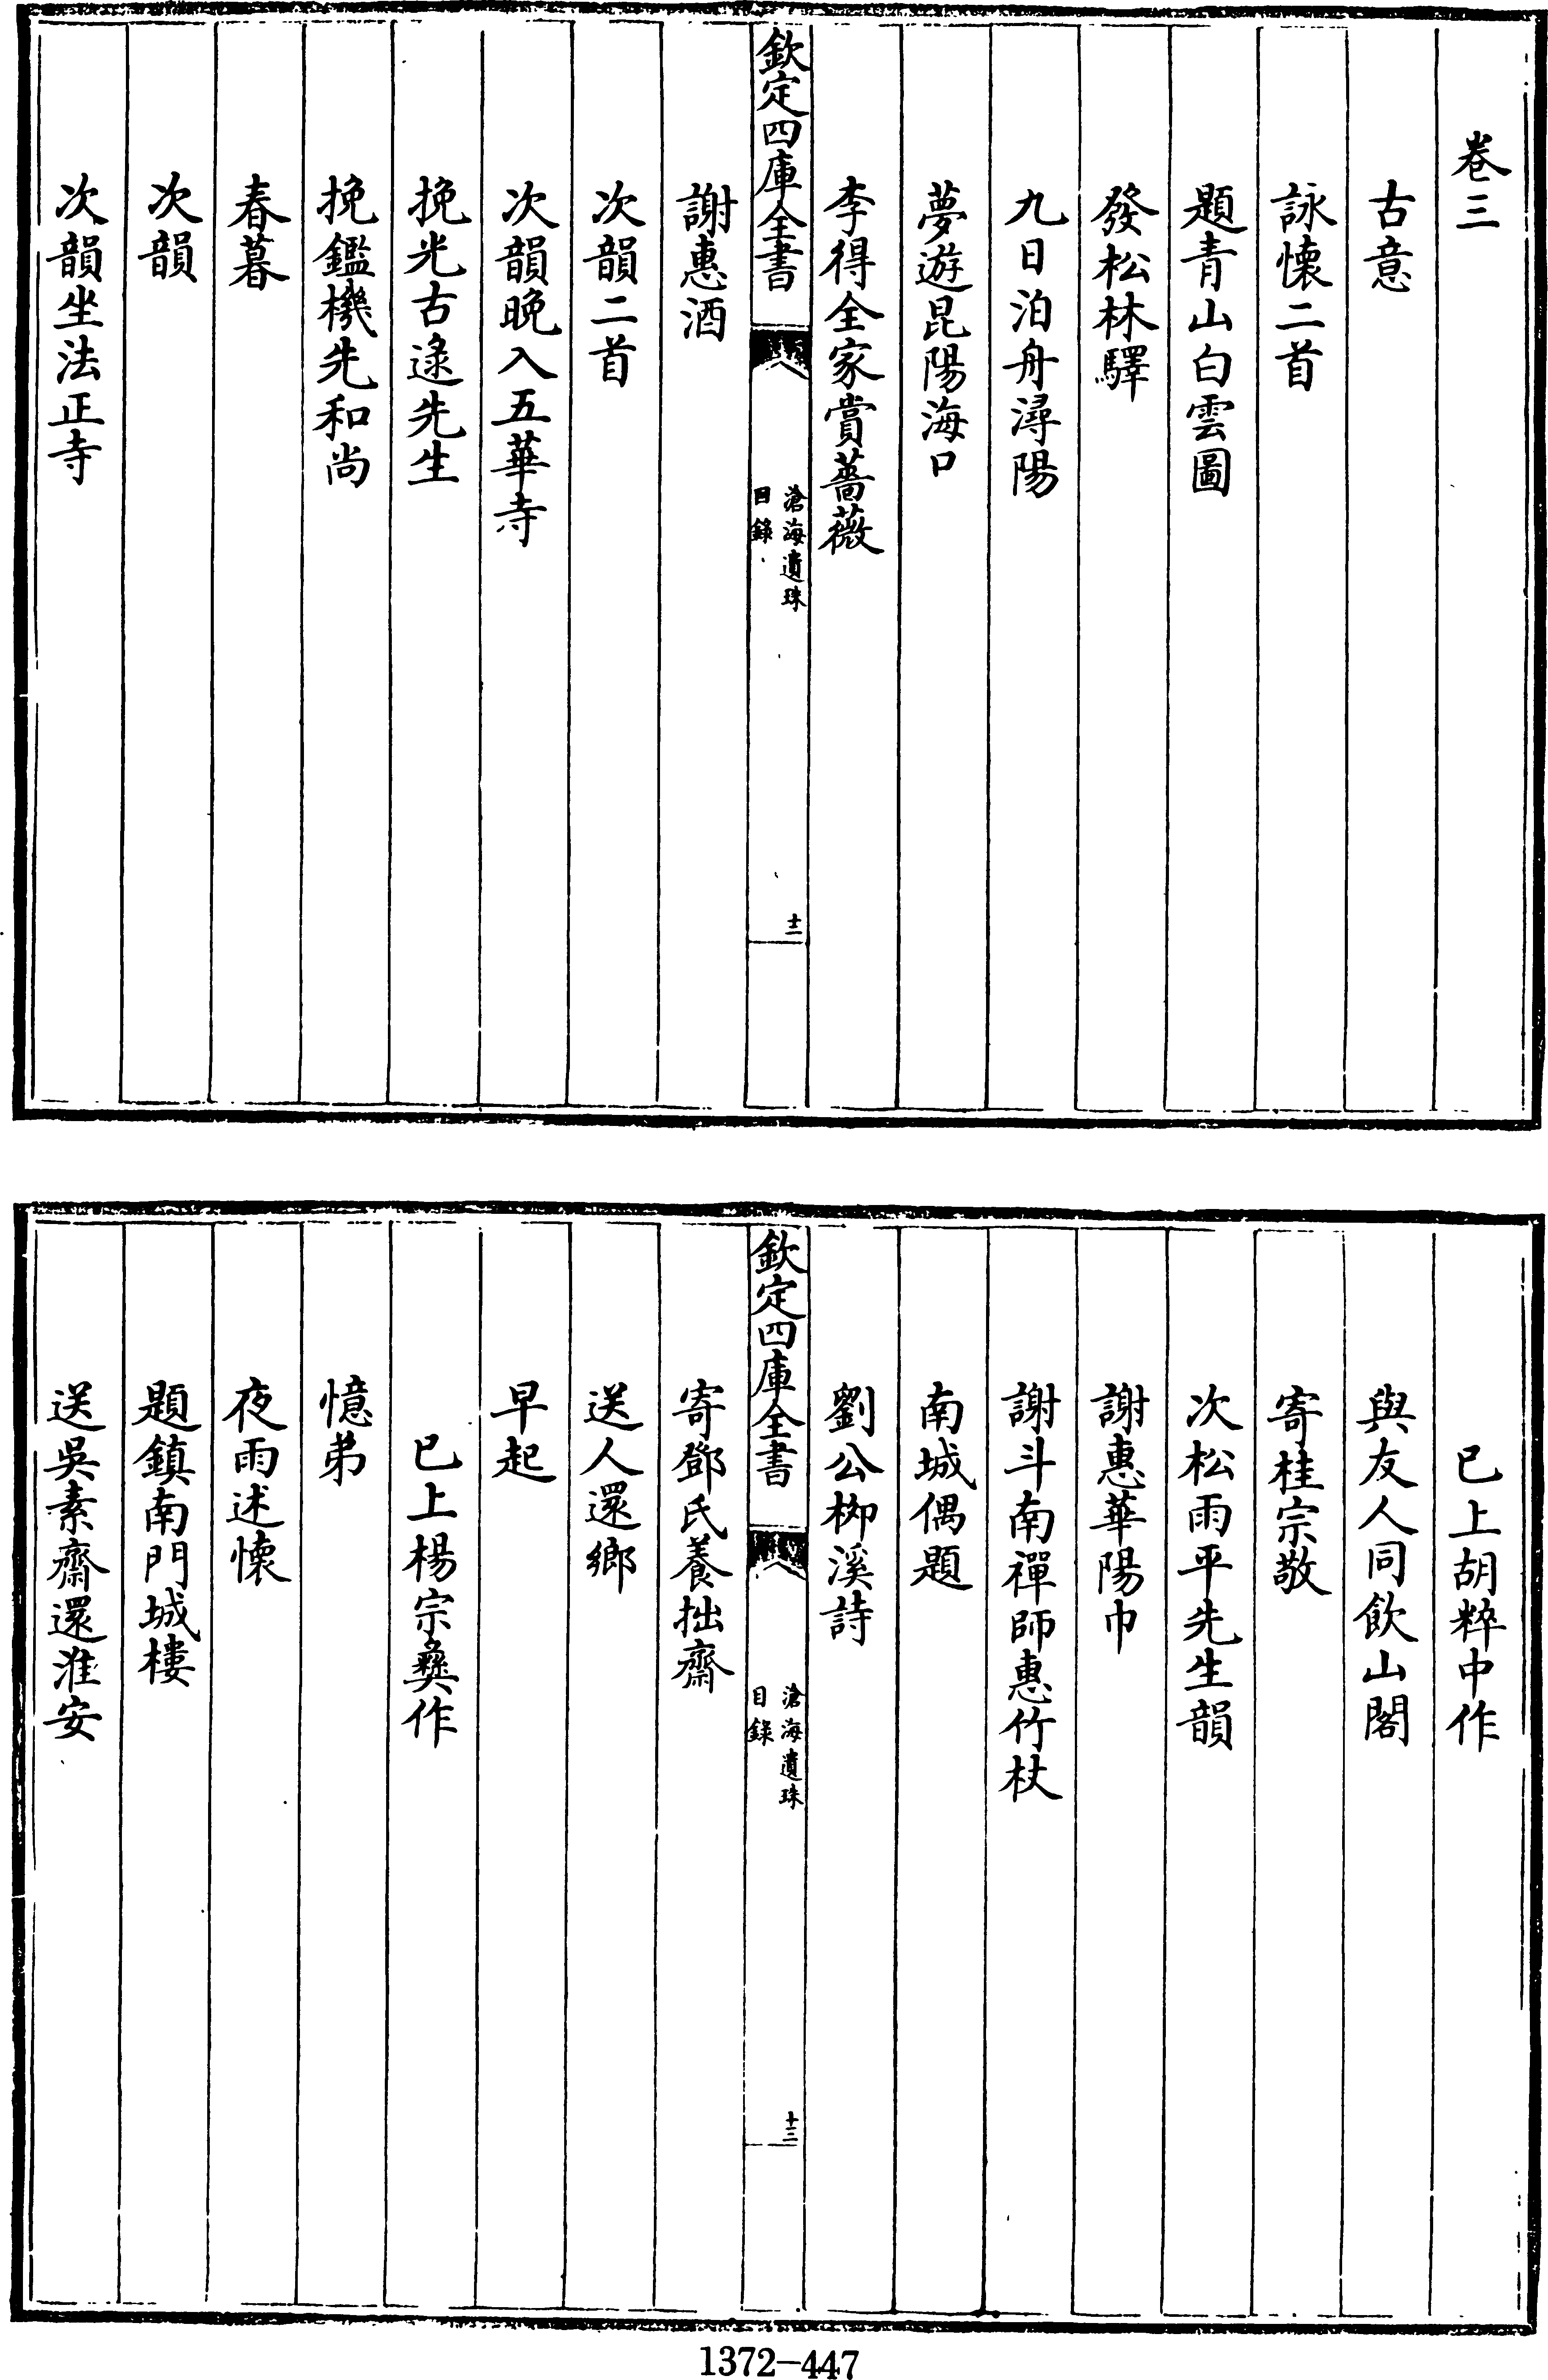 卷三
古意
詠懷二首
題青山白雲圖
發松林驛
九日泊舟潯陽
夢遊昆陽海口
李得全家賞薔薇
欽定四庫全書
滄海遺珠
目錄
十二
謝惠酒
次韻二首
次韻晚入五華寺
挽光古逺先生
挽鑑機先和尚
春暮
次韻
次韻坐法正寺
已上胡粹中作
與友人同飲山閣
寄桂宗敬
次松雨平先生韻
謝惠華陽巾
謝斗南禪師惠竹杖
南城偶題
劉公柳溪詩
欽定四庫全書
滄海遺珠
目錄
十三
寄鄧氏養拙齋
送人還鄉
早起
已上楊宗彝作
憶弟
夜雨述懷
題鎮南門城樓
送吳素齋還淮安
1372-447